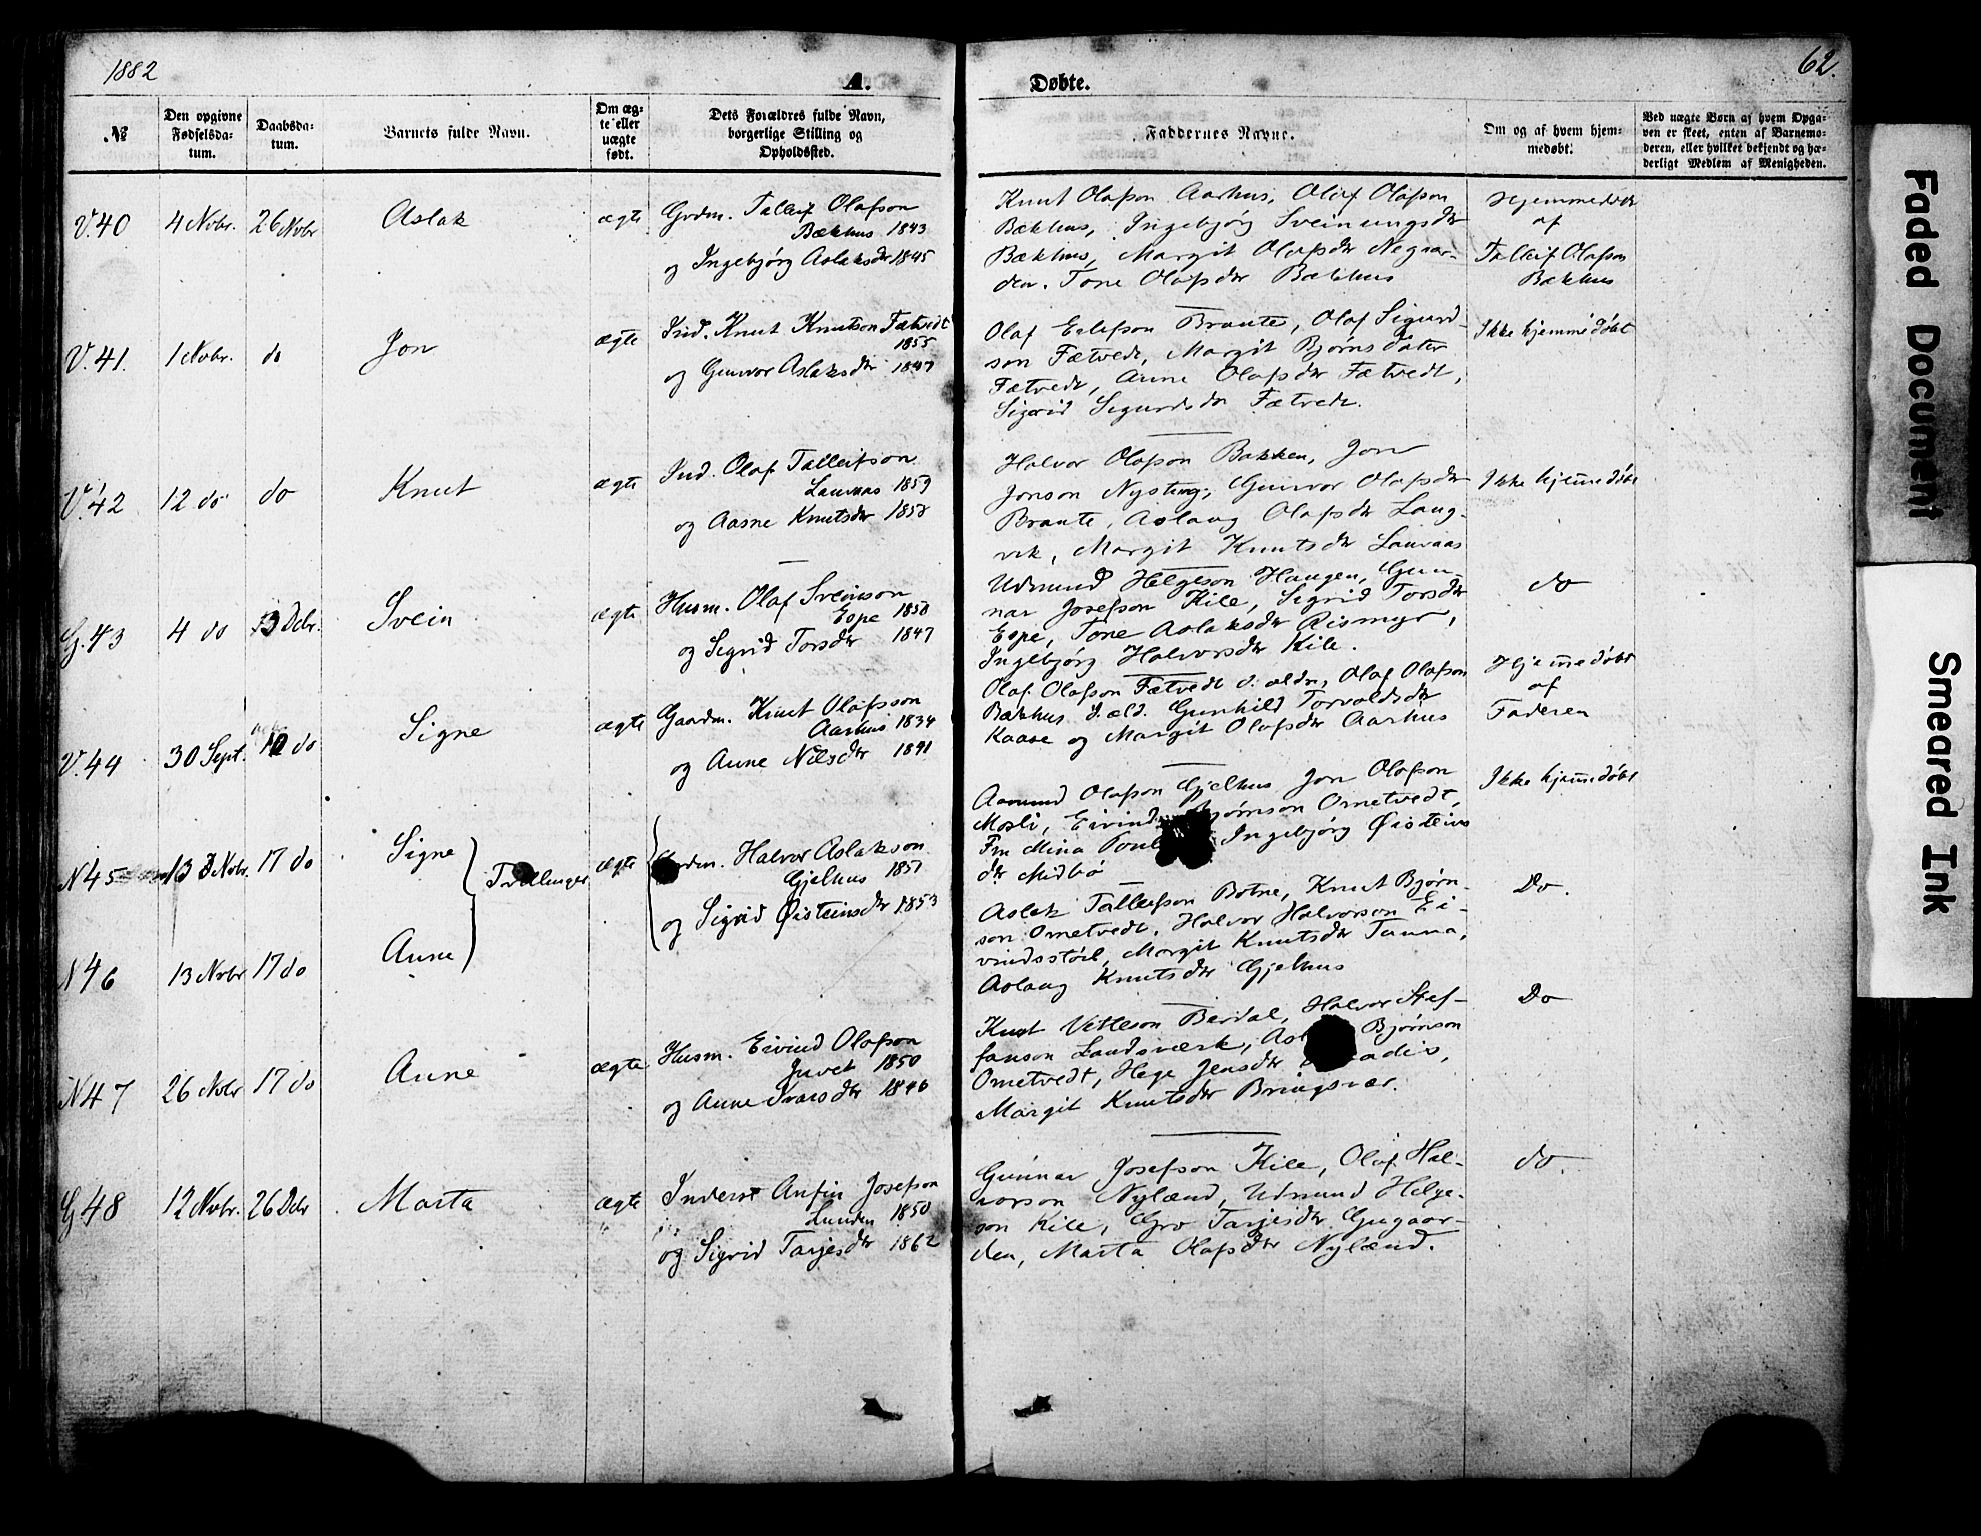 1882
A.
Døbte.
62.
№
Den opgivne Fødselsdatum.
Daabsdatum.
Barnets fulde Navn.
Om ægte eller uægte født.
Dets Forældres fulde Navn, borgerlige Stilling og Opholdssted.
Faddernes Navne.
Om og af hvem hjemmedøbt.
Ved uægte Børn af hvem Opgaven er skeet, enten af Barnemoderen, eller hvilket bekjendt og hæderligt Medlem af Menigheden.
V.40 4 Novbr. 26 Novbr Aslak ægte
Grdm. Talleif Olafson
Bækhus 1843
og Ingebjørg Aslaksdtr 1845
Knut Olafson Aarhus, Olaf Olafson
Bækhus, Ingebjørg Sveinungsdtr
Bækhus, Margit Olafsdtr Negaar-
den. Tone Olafsdtr Bækhus
Hjemmedøbt
af
Talleif Olafson
Bækhus
V.41. 1 Novbr. do Jon ægte
Ind. Knut Knutson Fætvedt
1855
og Gunvor Aslaksdtr 1847
Olaf Eilefson Braute, Olaf Sigurd-
son Fætvedt, Margit Bjørnsdatter
Fætvedt, Anne Olafsdtr Fætvedt,
Sigrid Sigurdsdtr Fætvedt.
Ikke hjemmedøbt
V.42 12 do do Knut ægte
Ind. Olaf Talleifson
Lauvaas 1859
og Aasne Knutsdtr 1858
Halvor Olafson Bakken, Jon
Jonson Nystug, Gunvor Olafsdtr
Braute, Aslaug Olafsdtr Lang-
vik, Margit Knutsdtr Lauvaas
Ikke hjemmedøbt
G.43 4 do 3 Dcbr. Svein ægte
Husm. Olaf Sveinson
Espe 1850
og Sigrid Torsdtr 1847
Udmund Helgeson Haugen, Gun-
nar Josefson Kile, Sigrid Torsdtr
Espe, Tone Aslaksdtr Rismyr,
Ingebjørg Halvorsdtr Kile.
do
V.44 30 Sept. 10 do Signe ægte
Gaardm. Knut Olafsson
Aarhus 1834
og Anne Nilsdtr 1841
Olaf Olafson Fætvedt d. eldr, Olaf Olafson
Bækhus d. eld. Gunhild Torvaldsdtr
Kaase og Margit Olafsdtr Aarhus
Hjemmedøbt
af
Faderen
N45 13 Novbr. 17 do Signe Tvillinger ægte
Grdm. Halvor Aslakson
Gjelhus 1857
og Sigrid Øisteinsdtr 1853
Aamund Olafson Gjelhus, Jon Olafson
Mosli, Eivind Bjørnson Ometvedt,
Fru Mina Ingebjørg Øisteins
dtr Midbø
Ikke hjemmedøbt
N46 13 Novbr 17 do Anne
Aslak Talleifson Botne, Knut Bjørn-
son Ometvedt, Halvor Halvorson Ei-
vindsstöil, Margit Knutsdtr Tanna,
Aslaug Knutsdtr Gjelhus
Do.
N47 26 Novbr 17 do Anne ægte
Husm. Eivind Olafson
Juvet 1850
og Anne Ivarsdtr 1846
Knut Vetleson Bærdal, Halvor Stef-
fanson Landsværk, Bjørnson
Ometvedt, Hege Jensdtr
Margit Knutsdtr Bringsvær.
Do
G.48 12 Novbr. 26 Dcbr Marta ægte
Inderst Anfin Josefson
Lunden 1850
og Sigrid Tarjesdtr 1862
Gunnar Josefson Kile, Olaf Hal-
vorson Nylænd, Udmund Helge-
son Kile, Gro Tarjesdtr Gugaar-
den, Marta Olafsdtr Nylænd.
do.
Faded Document
Smeared Ink